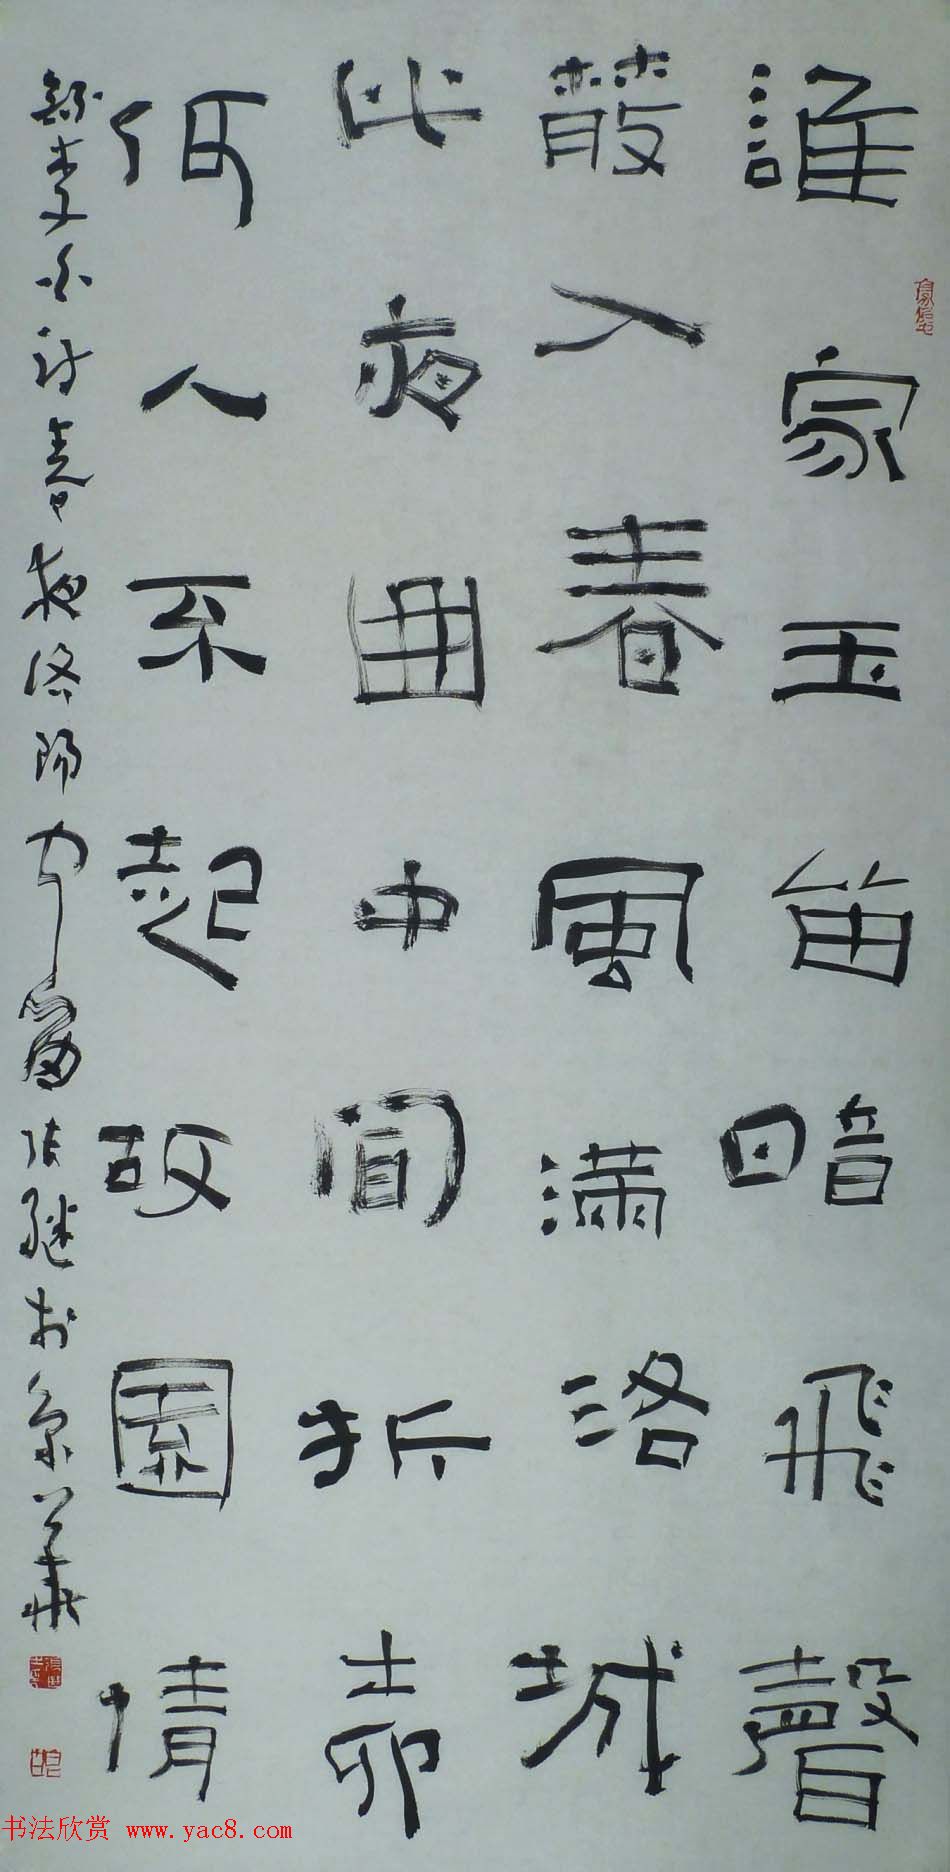 誰家玉笛暗飛聲
散入春風满洛城
此夜曲中聞折柳
何人不起故園情
錄李白詩春夜洛陽聞笛張継於京華
书法欣赏 www.yac8.com